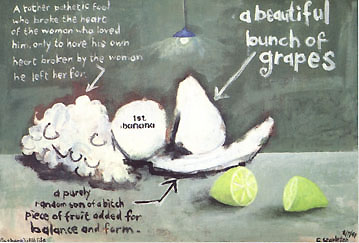 A rather pathetic fool
who broke the heart
of the woman who loved
him, only to have his own
heart broken by the woman
he left her for.
a beautiful
bunch of
grapes
1st.
banana
a purely
random son of a bitch
piece of fruit added for
balance and form.